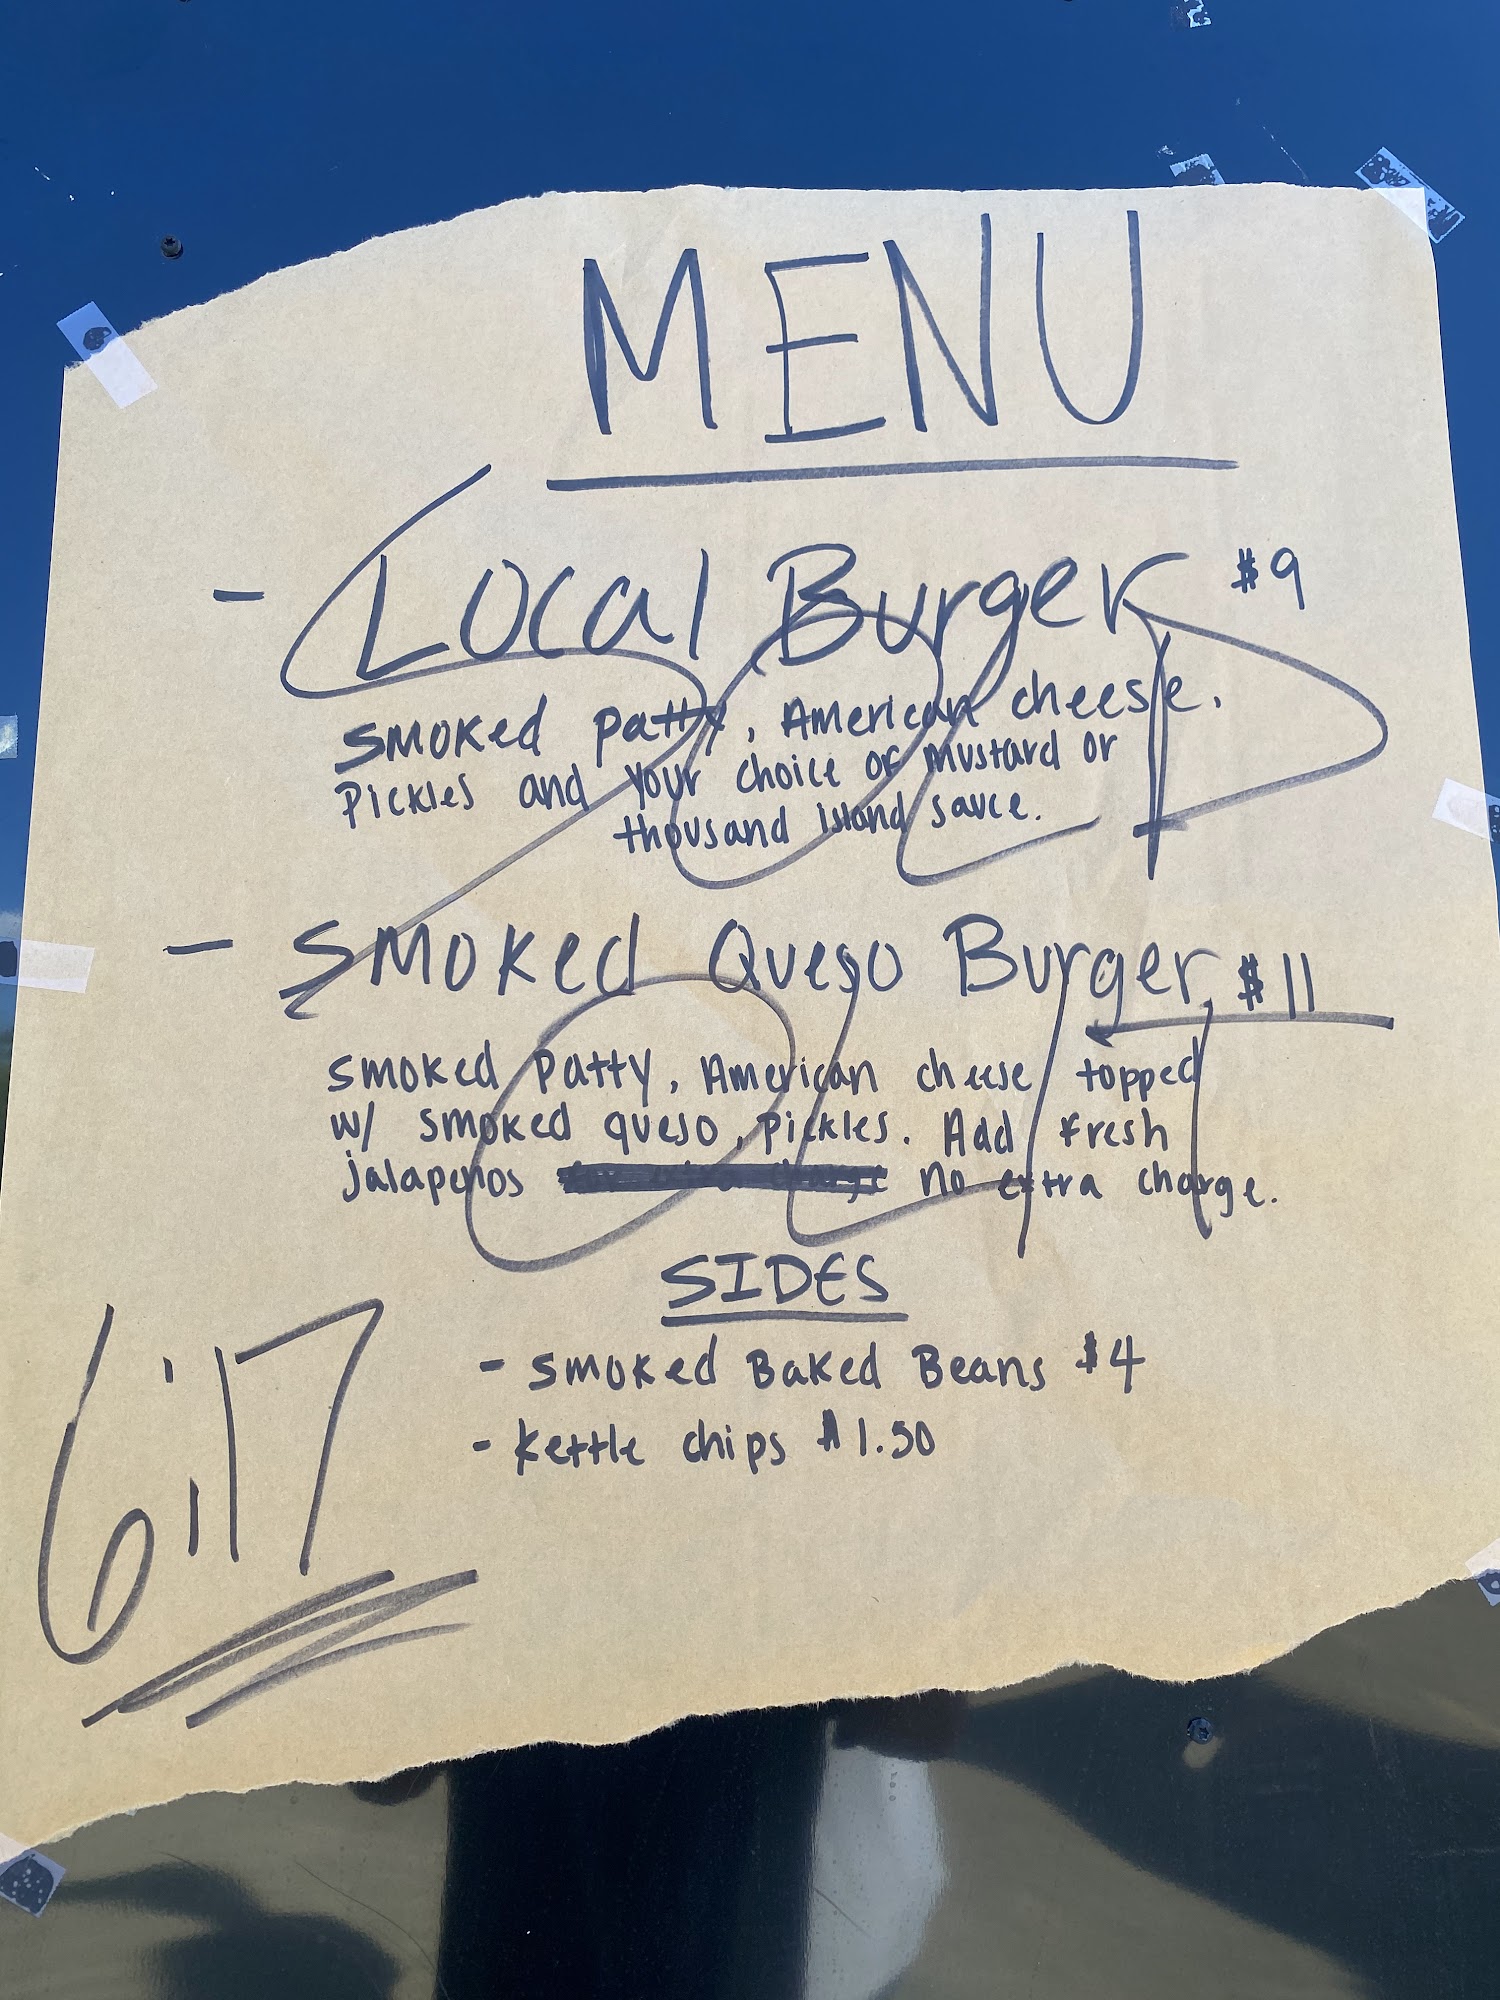 MENU
- Local Burger $9
smoked patty, American cheese.
Pickles and your choice of mustard or
thousand island sauce.
- Smoked Queso Burger $11
smoked patty, American cheese topped
w/ smoked queso, pickles. Add fresh
jalapenos no extra charge.
SOLD
OUT
SIDES
- smoked Baked Beans $4
- kettle chips $1.50
6:17